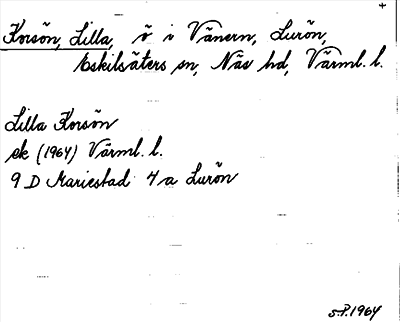 Korsön, Lilla, ö i Vänern, Lurön,
Eskilsäters sn, Näs hd, Värml. l.
Lilla Korsön
ek (1964) Värml. l.
9 D Mariestad 4 a Lurön
S.P. 1964